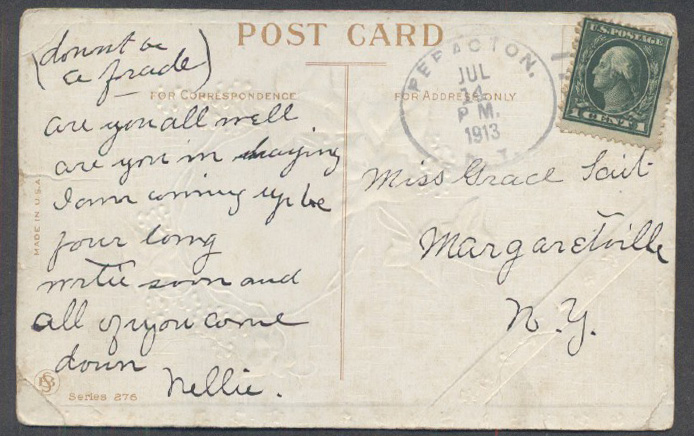 POST CARD
(dount be
a frade)
FOR CORRESPONDENCE
are you all well
are you in haying
I am coming up be
four long
wrtie soon and
all of you come
down
Nellie.
MADE IN U.S.A.
Series 276
FOR ADDRESS ONLY
PEPACTON,
JUL
14
P M.
1913
U.S. POSTAGE
1 CENT 1
Miss Grace
Margaretville
N.Y.